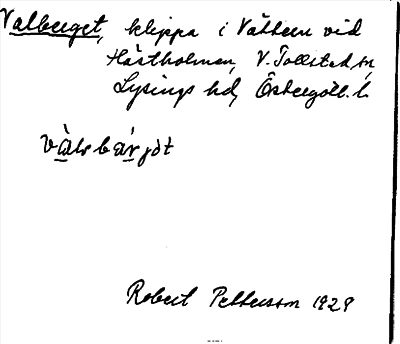 Valberget, klippa i Vättern vid
Hästholmen, V. Tollstad sn,
Lysings hd, Östergötl. l.
Robert Pettersson 1929